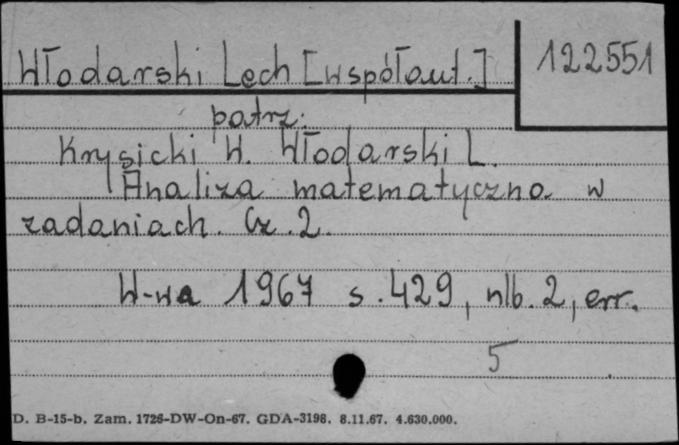 Włodarski Lech [współaut.]
122551
patrz:
Krysicki W. Włodarski L.
Analiza matematyczna w
zadaniach. Cz. 2.
W-wa 1967 s. 429, nlb. 2, err.
5
D. B-15-b. Zam. 1726-DW-On-67. GDA-3198. 8.11.67. 4.630.000.